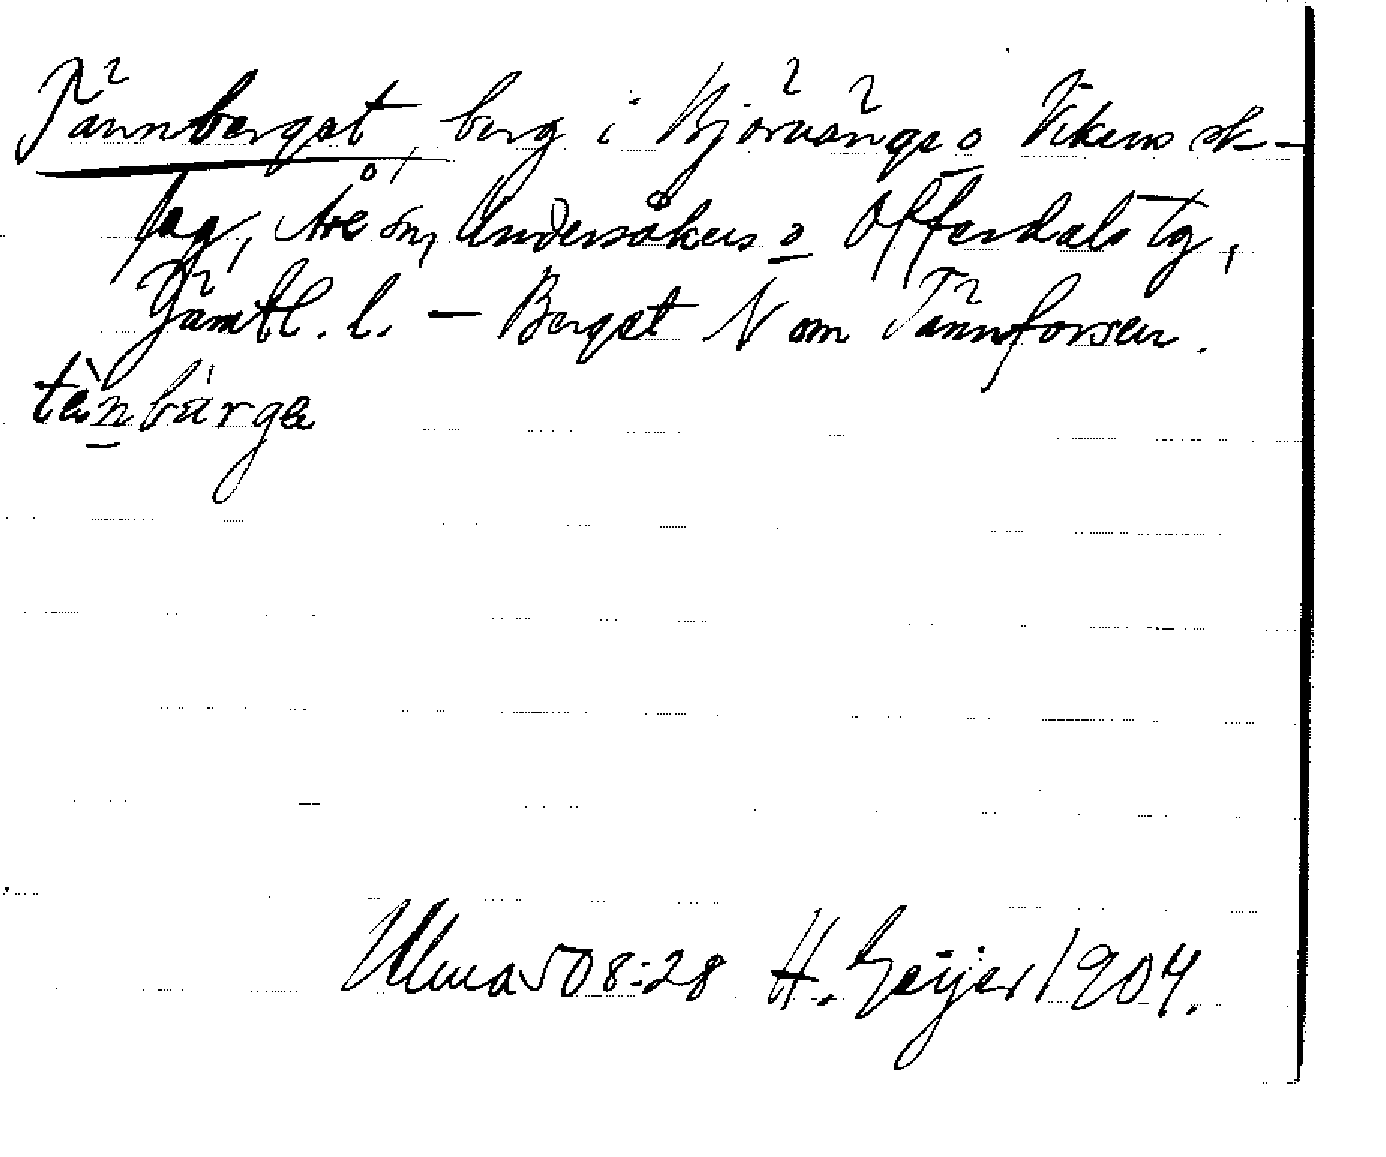 Tännberget, berg i Björnänge o Vikens sk-
lag, Åre sn, Undersåkers o Offerdals tg,
Jämtl. l. – Berget N om Tännforsen.
tä̀nbärge
Ulma 508:28 H. Geijer 1904.